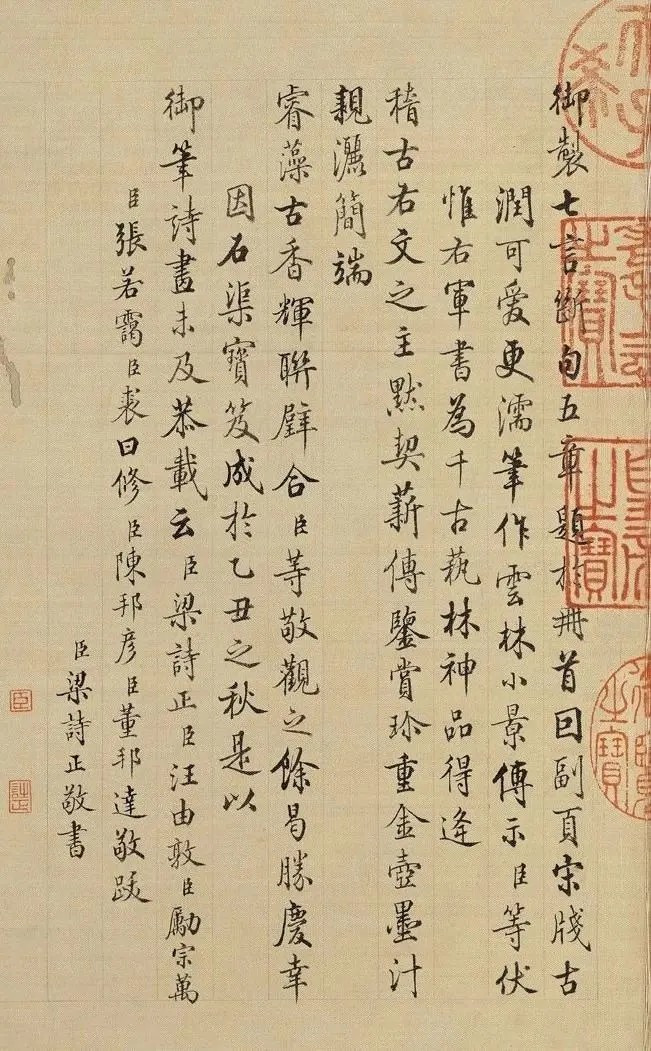 御製七言斷句五章題於冊首回副頁宋牋古
潤可愛更濡筆作雲林小景傳示臣等伏
惟右軍書為千古藝林神品得逢
稽古右文之主默契薪傳鑒賞珍重金壺墨汁
親灑簡端
睿藻古香輝聯璧合臣等敬觀之餘曷勝慶幸
因石渠寶笈成於乙丑之秋是以
御筆詩畫未及恭載云臣梁詩正臣汪由敦臣勵宗萬
臣張若靄臣裘曰修臣陳邦彥臣董邦達敬跋
臣梁詩正敬書